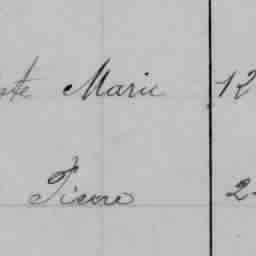 ste Marie 12
Pierre 2